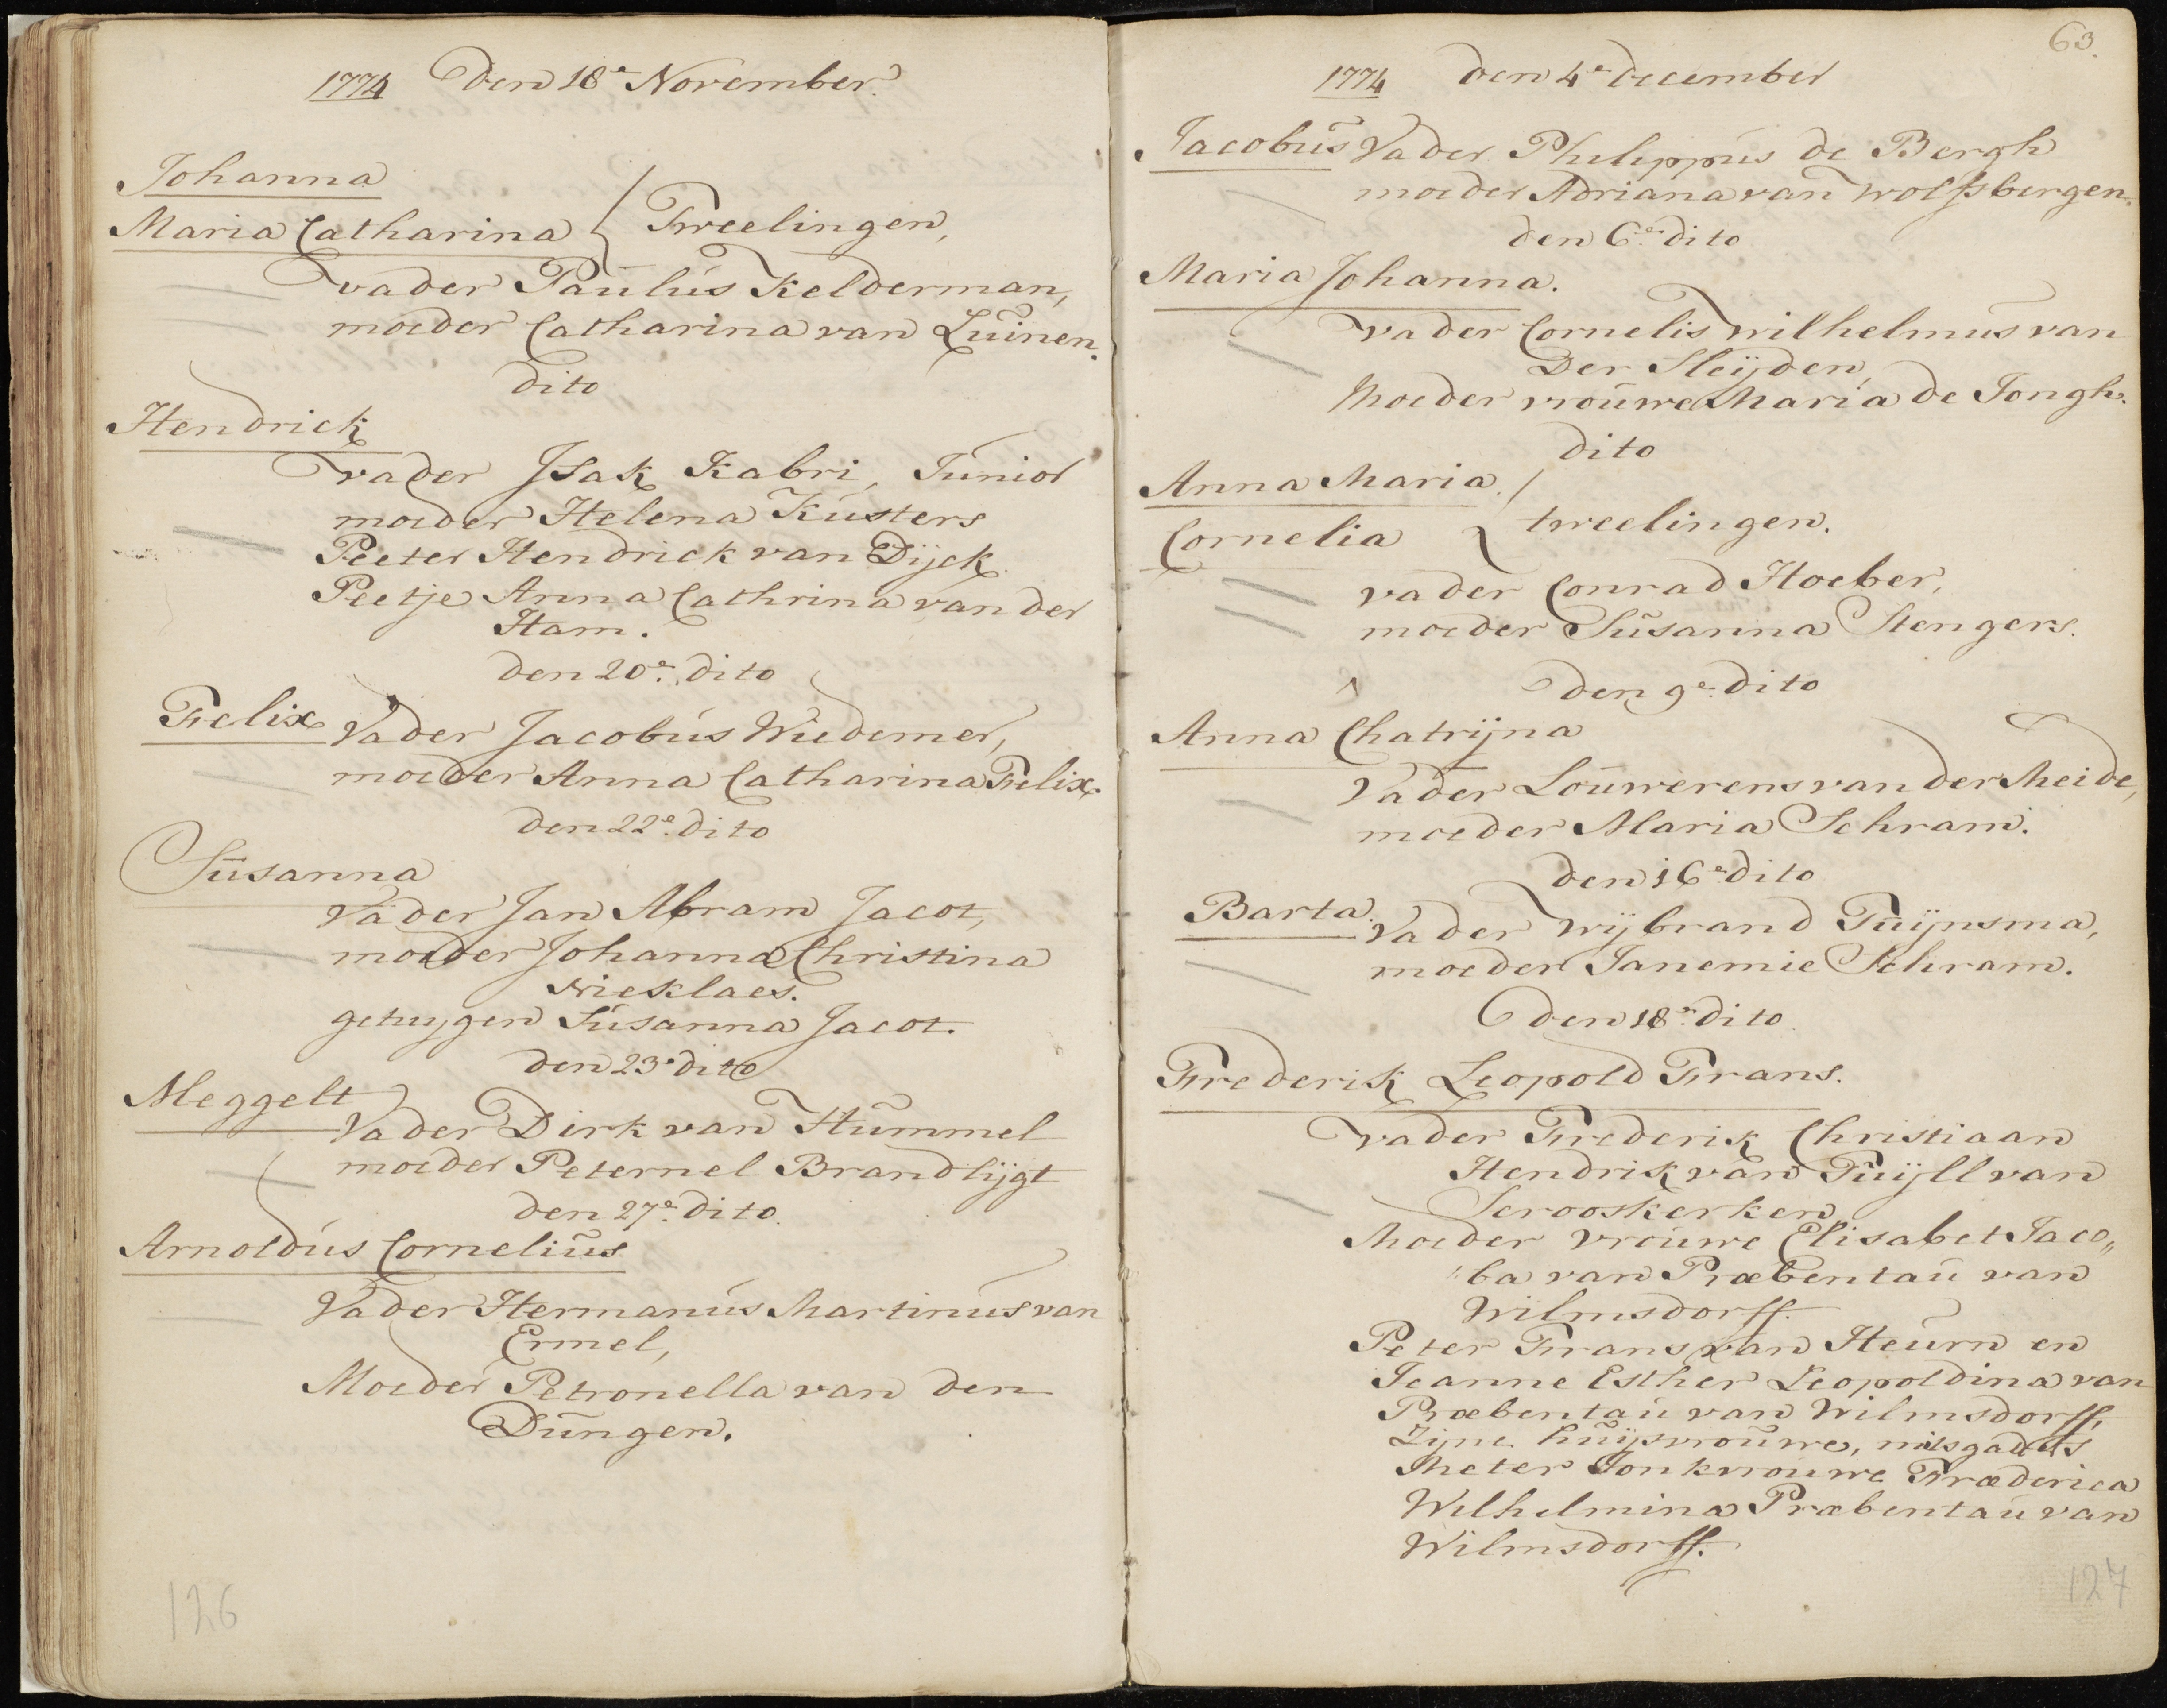 1774 Den 18e November.
Johanna
Maria Catharina } Tweelingen,
vader Paulus Kelderman,
moeder Catharina van Luinen.
dito
Hendrick
vader Isak Kabri, Junior
moeder Helena Kusters
Peeter Hendrick van Dijck
Peetje Anna Cathrina van der
Ham.
den 20e dito
Felix Vader Jacobus Wiedemer,
moeder Anna Catharina Felix.
den 22e dito
Susanna
Vader Jan Abram Jacot,
moeder Johanna Christina
Nieklaes.
getuygen Susanna Jacot.
den 23e dito
Meggelt
Vader Dirk van Hummel
moeder Peternel Brandlijgt
den 27e dito.
Arnoldus Cornelius
Vader Hermanus Martinus van
Ermel,
Moeder Petronella van den
Dungen.
126
63.
1774 den 4e december
Jacobus Vader Phileppus de Bergh
moeder Adriana van Wolfsbergen.
den 6e dito
Maria Johanna.
vader Cornelis Wilhelmus van
Der Sleijden,
Moeder vrouwe Maria de Jongh.
dito
Anna Maria
Cornelia { tweelingen.
vader Conrad Hoeber,
moeder Susanna Stengers.
den 9e dito
Anna Chatrijna
Vader Louwerens van der Meide,
moeder Maria Schram.
den 16e dito
Barta. Vader Wijbrand Tuijnsma,
moeder Janemie Schram.
den 18e dito
Frederik Leopold Frans.
vader Frederik Christiaan
Hendrik van Tuijll van
Serooskerken
Moeder Vrouwe Elisabet Jaco„
ba van Præbentau van
Wilmsdorff.
Peter Frans van Heurn en
Jeanne Esther Leopoldina van
Præbentau van Wilmsdorff,
Zijne huijsvrouwe, mitsgaders
Meter Jonkvrouwe Fræderica
Wilhelmina Præbentau van
Wilmsdorff.
127